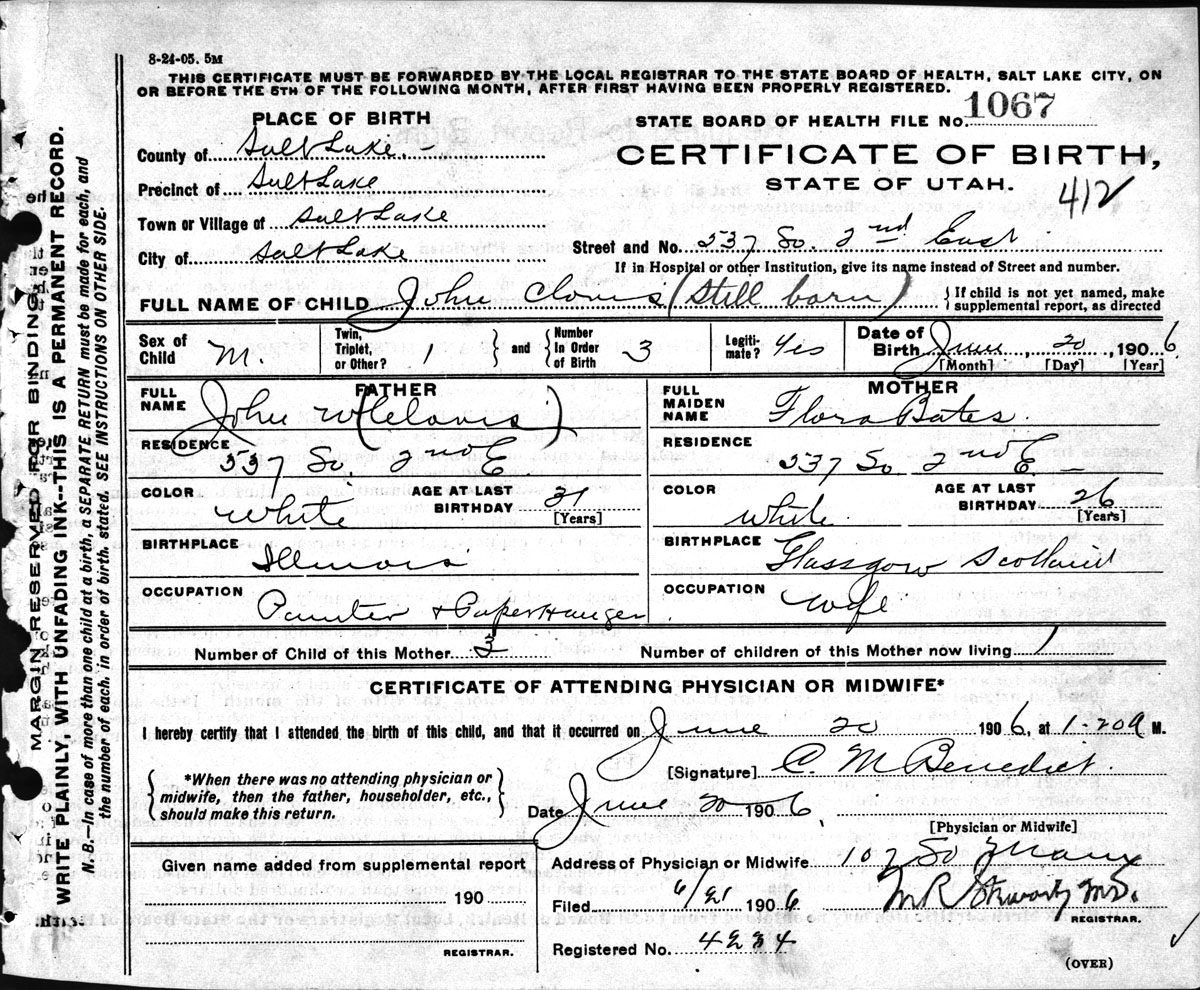 8-24-05. 5M
THIS CERTIFICATE MUST BE FORWARDED BY THE LOCAL REGISTRAR TO THE STATE BOARD OF HEALTH, SALT LAKE CITY, ON
OR BEFORE THE 5TH OF THE FOLLOWING MONTH, AFTER FIRST HAVING BEEN PROPERLY REGISTERED.
MARGIN RESERVED FOR BINDING
WRITE PLAINLY, WITH UNFADING INK--THIS IS A PERMANENT RECORD.
N. B.--In case of more than one child at a birth, a SEPARATE RETURN must be made for each, and
the number of each, in order of birth, stated. SEE INSTRUCTIONS ON OTHER SIDE.
PLACE OF BIRTH
County of Salt Lake. -
Precinct of Salt Lake
Town or Village of Salt Lake
City of Salt Lake
STATE BOARD OF HEALTH FILE No. 1067
CERTIFICATE OF BIRTH,
STATE OF UTAH.
412
Street and No. 537 So. 2nd East
If in Hospital or other Institution, give its name instead of Street and number.
FULL NAME OF CHILD John Clovis (Still born)
{If child is not yet named, make
supplemental report, as directed
Sex of Child M.
Twin, Triplet, or Other? 1 } and { Number In Order of Birth 3
Legiti-mate? Yes
Date of Birth June, 20, 1906
[Month] [Day] [Year]
FATHER
FULL NAME John W (Clovis)
RESIDENCE
537 So. 2nd E
COLOR White
AGE AT LAST BIRTHDAY 31
[Years]
BIRTHPLACE Illinois
OCCUPATION
Painter & Paper Hanger
MOTHER
FULL MAIDEN NAME Flora Bates.
RESIDENCE
537 So 2nd E. -
COLOR White.
AGE AT LAST BIRTHDAY 26
[Years]
BIRTHPLACE Glassgow Scotland
OCCUPATION Wife
Number of Child of this Mother 3
Number of children of this Mother now living 1
CERTIFICATE OF ATTENDING PHYSICIAN OR MIDWIFE*
I hereby certify that I attended the birth of this child, and that it occurred on June 20 1906, at 1-20 a M.
{*When there was no attending physician or
midwife, then the father, householder, etc.,
should make this return.}
[Signature] C. M Benedict.
Date June 20 1906.
[Physician or Midwife]
Given name added from supplemental report
190
REGISTRAR.
Address of Physician or Midwife 107 So Main
Filed 6/21 1906 M R Stewart M.D.
REGISTRAR.
Registered No. 4234
(OVER)